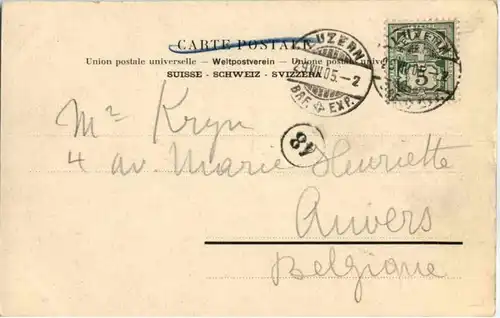 CARTE POSTALE
Union postale universelle. — Weltpostverein — Unione postale universale
SUISSE - SCHWEIZ - SVIZZERA
LUZERN
29.VII.05.-2
BRF. EXP.
5
48
Mr Kryn
4 av. Marie Henriette
Anvers
Belgique